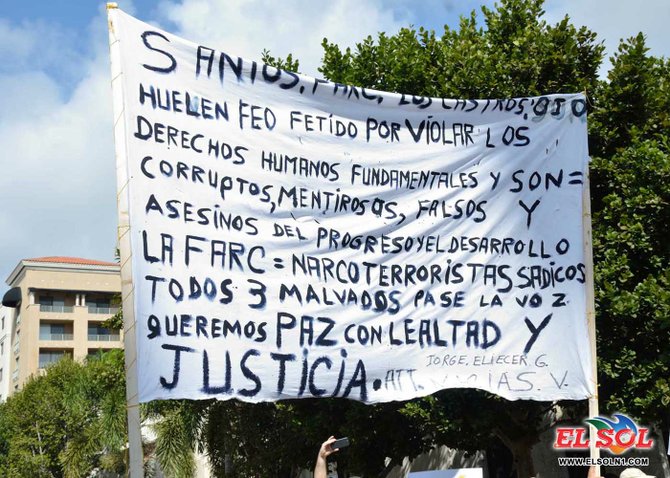 SANTOS, FARC, LOS CASTROS, OJO
HUELEN FEO FETIDO POR VIOLAR LOS
DERECHOS HUMANOS FUNDAMENTALES Y SON=
CORRUPTOS, MENTIROSOS, FALSOS Y
ASESINOS DEL PROGRESO Y EL DESARROLLO
LA FARC = NARCOTERRORISTAS SADICOS
TODOS 3 MALVADOS PASE LA VOZ
QUEREMOS PAZ CON LEALTAD Y
JUSTICIA. ATT.
JORGE, ELIECER G.
S. V.
EL SOL
WWW.ELSOLN1.COM